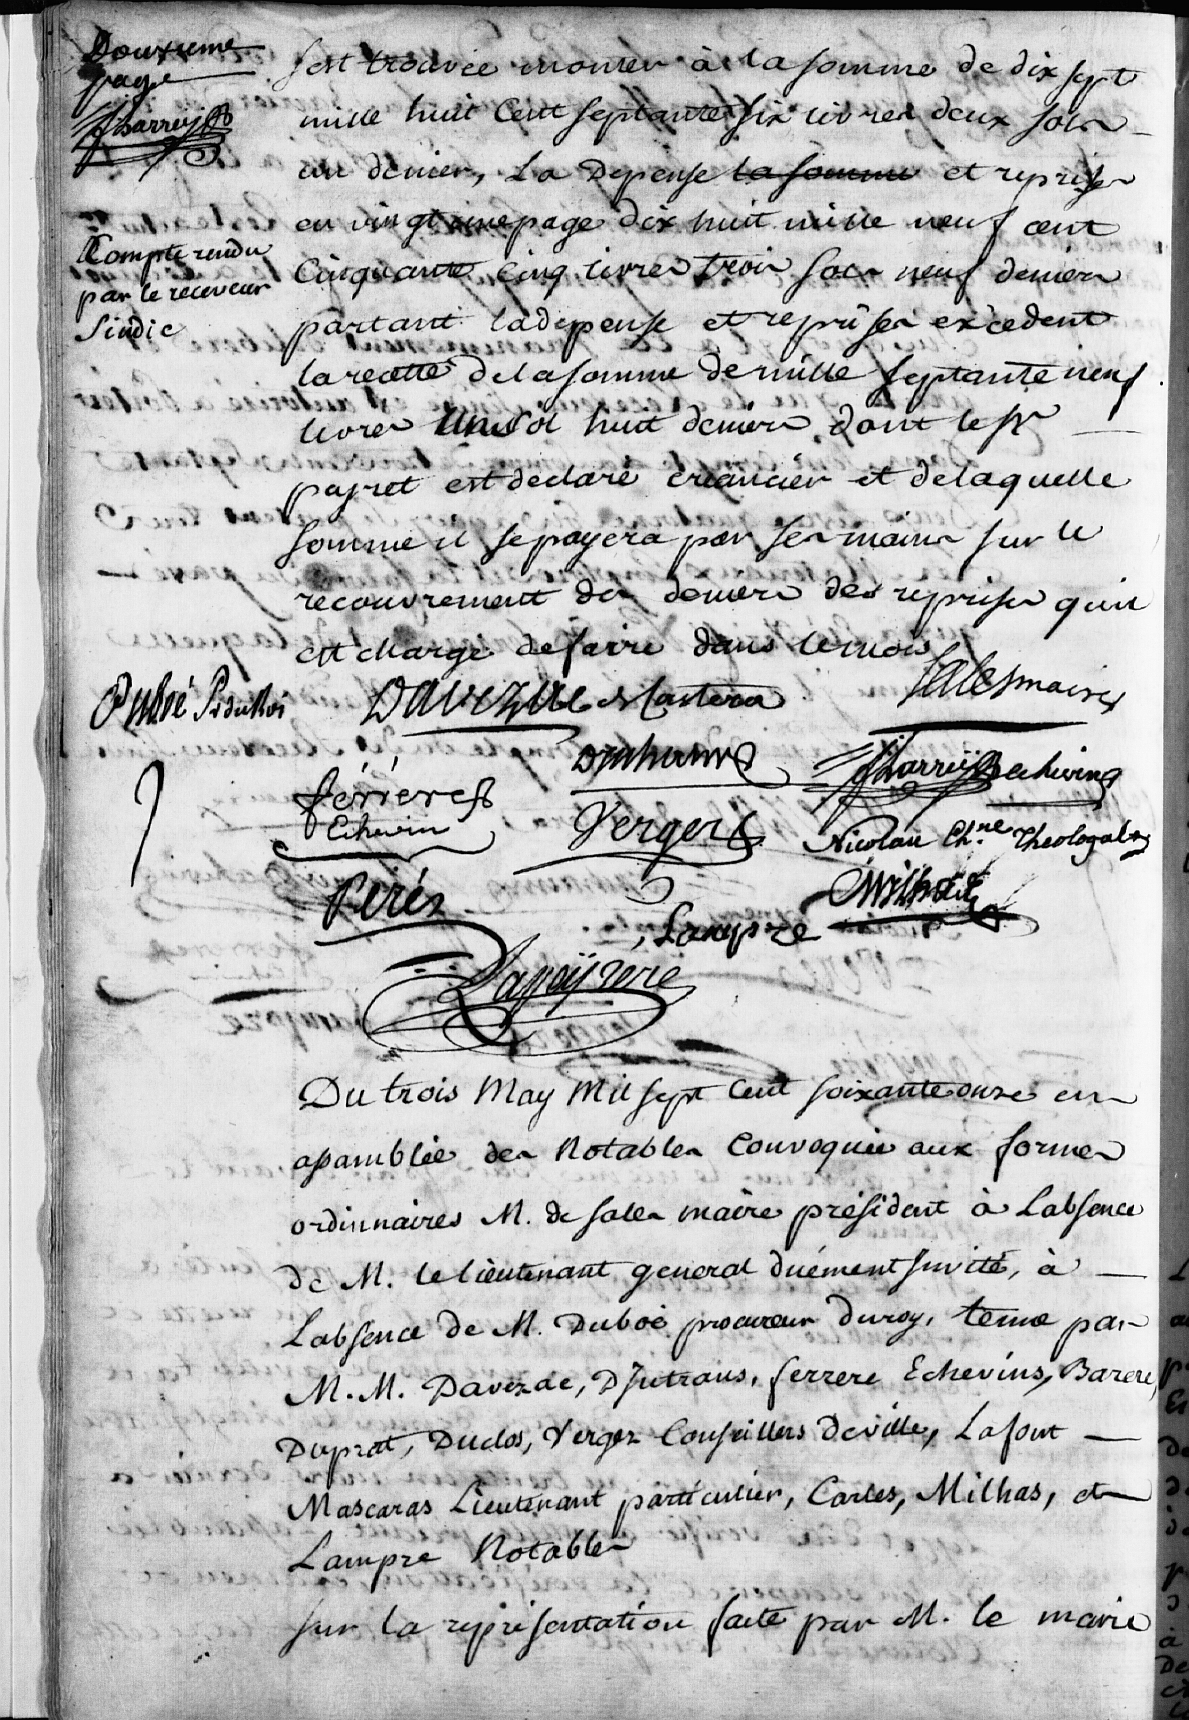 Douxieme
page
JBarreyre
Compte rendu
par le receveur
Sindic
s'est trouvée monter à la somme de dix sept
mille huit Cent septante six livres deux sols
un denier, La Depense la somme et reprises
en vingt une page dix huit mille neuf cent
Cinquante cinq livres trois sols neuf deniers
partant la depense et reprises excedent
la recette de la somme de mille septante neuf
livres Un sol huit deniers dont le Sr
payret est declaré creancier et de laquelle
somme il se payera par ses mains sur le
recouvrement des deniers des reprises quil
est chargé de faire dans le mois
Davezac Salesmaire
férrére
Echevin
Verges Nicolau Ch.ne Theologal
Pérés Milhas
Lampre
Lapeÿrere
Du trois May Mil sept Cent soixante onze en
assamblée des Notables Convoquée aux formes
ordinnaires M. de sales maire président à Labsence
de M. le liéutenant general duément Invité, à
Labsence de M. Duboé procureur du roy, tenue par
M.M. Davezac, Djutrans, ferrere Echevins, Barere,
Duprat, Duclos, Verges Conseillers de ville, Lafont
Mascaras Lieutenant particulier, Carles, Milhas, et
Lampre Notables
sur la représentation faite par M. le maire